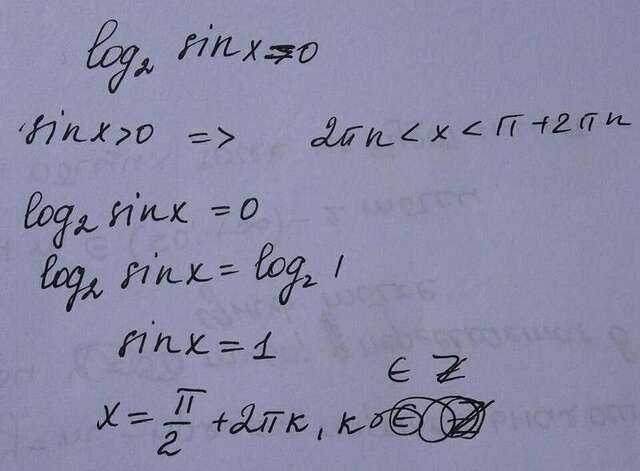 log₂ sinx = 0
sinx>0 => 2πn < x < π + 2πn
log₂ sinx = 0
log₂ sinx = log₂ 1
sinx = 1
∈ Z
x = π/2 + 2πk, k